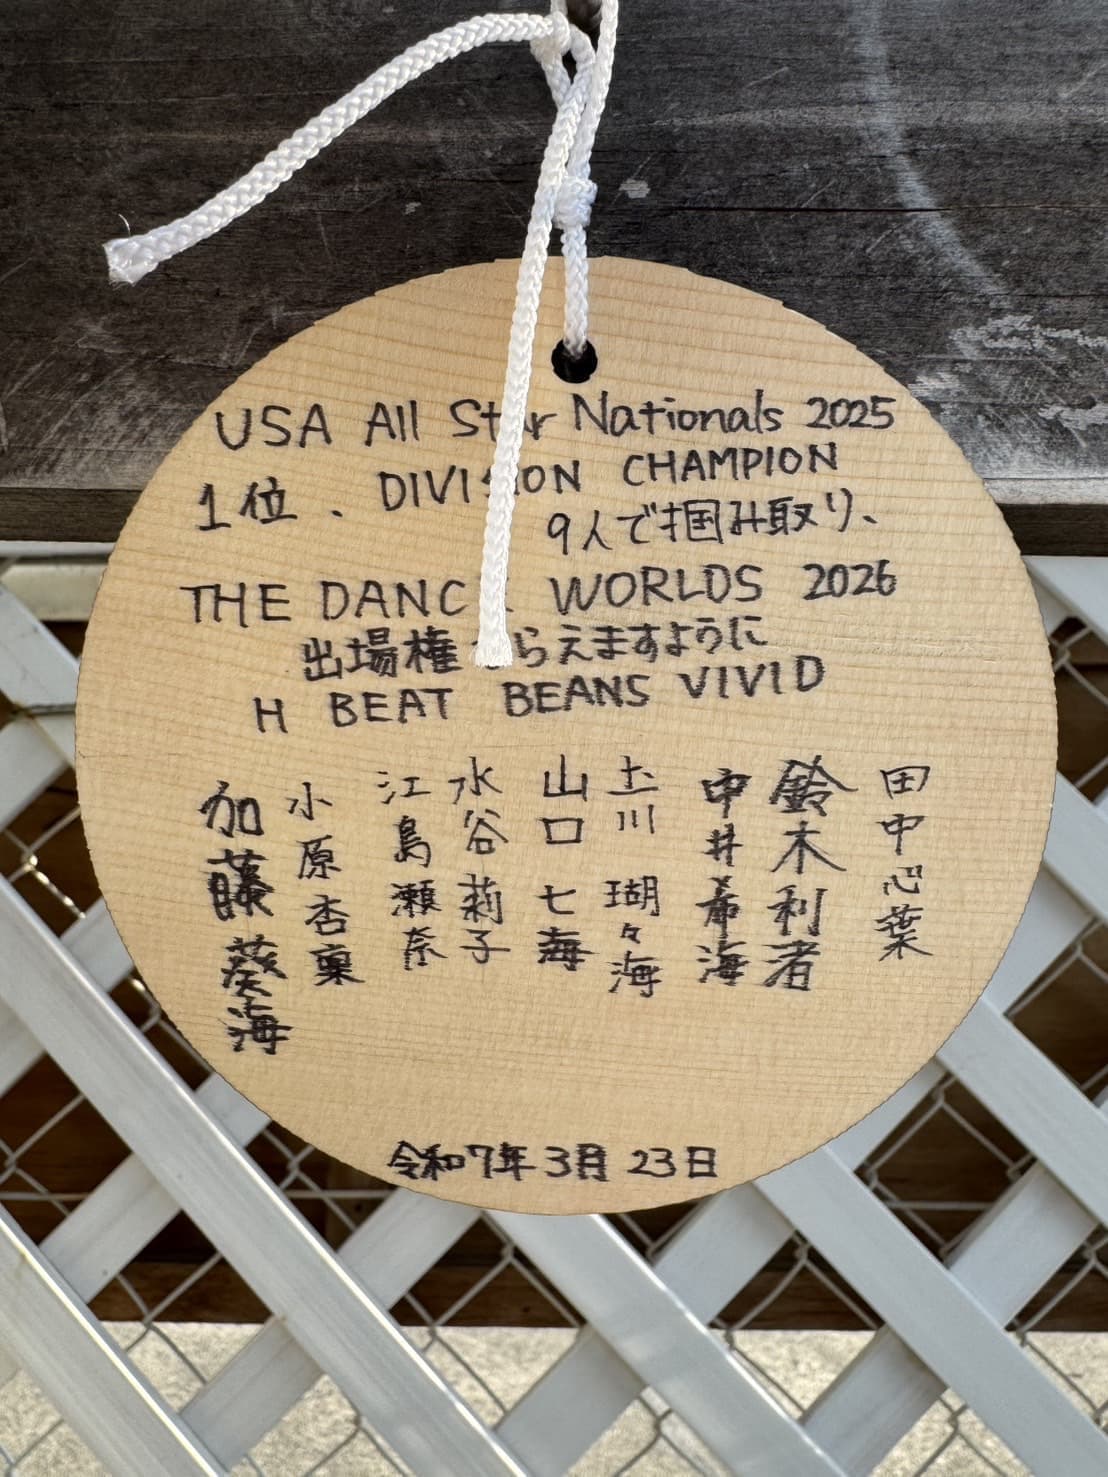 USA All Star Nationals 2025
1位、DIVISION CHAMPION
9人で掴み取り、
THE DANCE WORLDS 2026
出場権もらえますように
H BEAT BEANS VIVID
田中心葉
鈴木利者
中井希海
土川瑚々海
山口七海
水谷莉子
江島瀬奈
小原杏稟
加藤葵海
令和7年3月23日